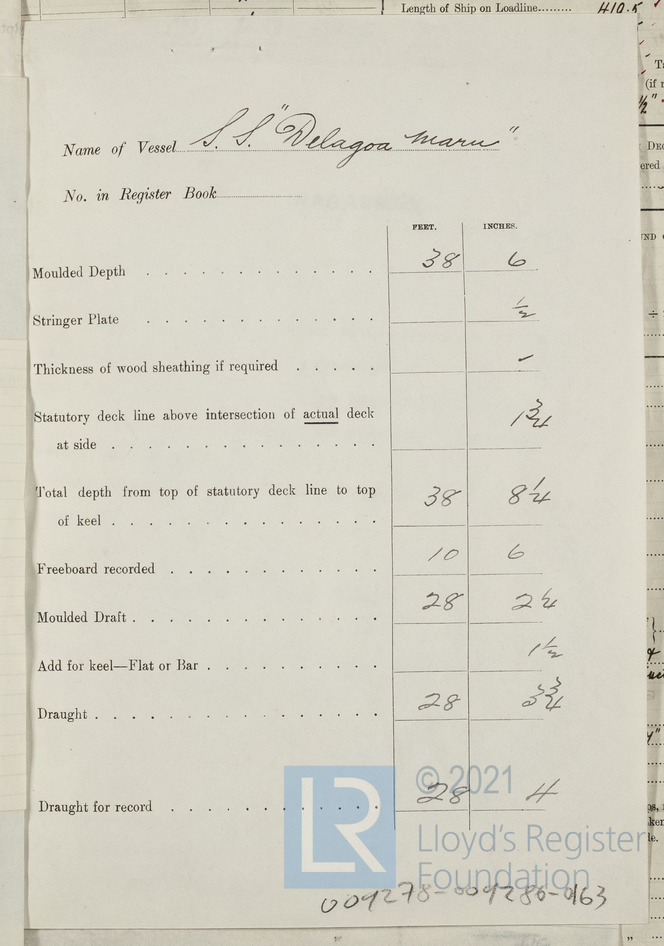 Length of Ship on Loadline......... 410.5
Name of Vessel S.S. "Delagoa Maru"
No. in Register Book
FEET. INCHES.
Moulded Depth . . . . . . . . . . . . . 38 6
Stringer Plate . . . . . . . . . . . . . ½
Thickness of wood sheathing if required . . . . . ✓
Statutory deck line above intersection of actual deck 1¾
at side . . . . . . . . . . . . . . .
Total depth from top of statutory deck line to top 38 8¼
of keel . . . . . . . . . . . . . . .
Freeboard recorded . . . . . . . . . . . . 10 6
Moulded Draft . . . . . . . . . . . . . . 28 2¼
Add for keel—Flat or Bar . . . . . . . . . . 1½
Draught . . . . . . . . . . . . . . . . 28 3¾
Draught for record . . . . . . . . . . . . 28 4
LR
© 2021
Lloyd's Register
Foundation
009278-009286-0163